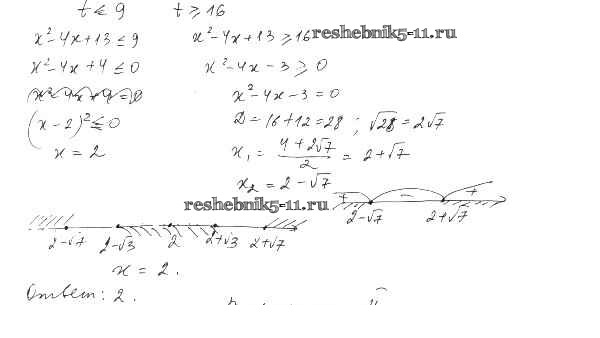 t ≤ 9 t ≥ 16
x² - 4x + 13 ≤ 9 x² - 4x + 13 ≥ 16 reshebnik5-11.ru
x² - 4x + 4 ≤ 0 x² - 4x - 3 ≥ 0
x² - 4x - 3 = 0
(x - 2)² ≤ 0 D = 16 + 12 = 28 ; √28 = 2√7
x = 2 x₁ = (4 + 2√7)/2 = 2 + √7
x₂ = 2 - √7
reshebnik5-11.ru + − +
2-√7 2+√7
2-√7 2-√3 2 2+√3 2+√7
x = 2.
Ответ: 2.